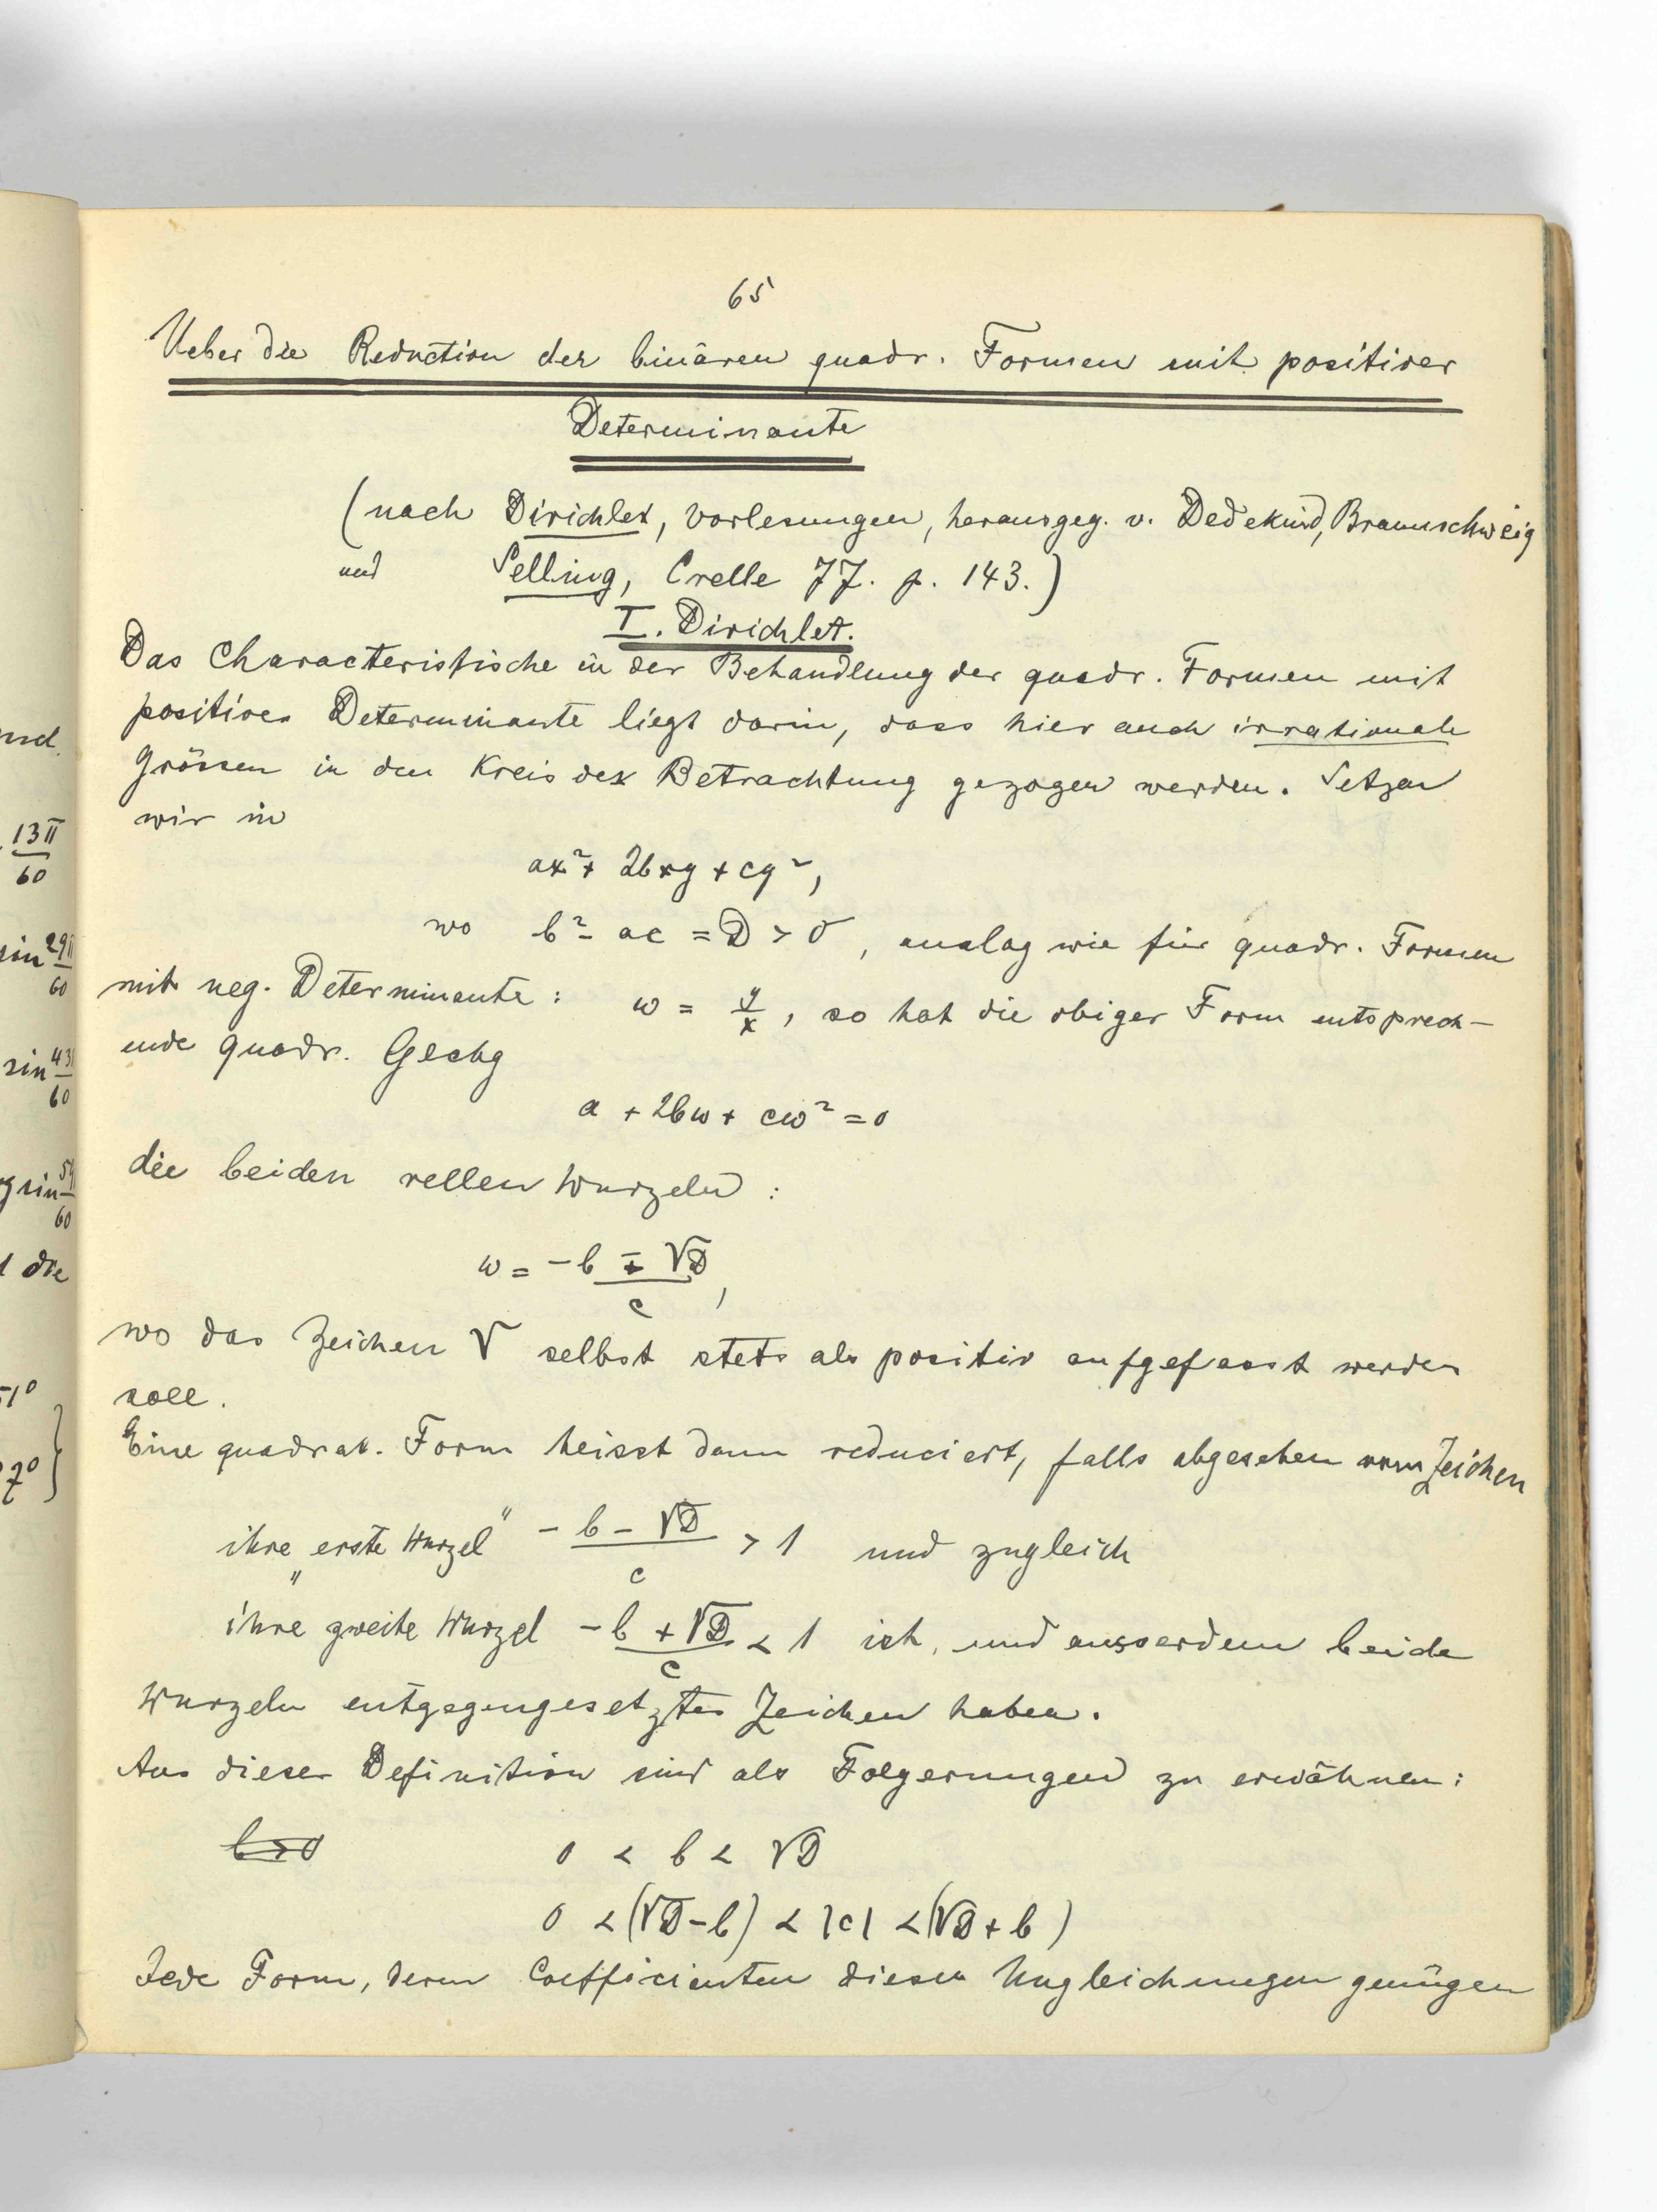 65
Ueber die Reduction der binären quadr. Formen mit positiver
Determinante
(nach Dirichlet, Vorlesungen, herausgeg. v. Dedekind, Braunschweig
und Selling, Crelle 77. p. 143.)
I. Dirichlet.
Das Characteristische in der Behandlung der quadr. Formen mit
positiver Determinante liegt darin, dass hier auch irrationale
Grössen in den Kreis der Betrachtung gezogen werden. Setzen
wir in
ax² + 2bxy + cy²,
wo b² - ac = D > 0, analog wie für quadr. Formen
mit neg. Determinante: ω = y/x, so hat die obiger Form entsprech-
ende quadr. Glchg
a + 2bω + cω² = 0
die beiden rellen Wurzeln:
ω = (-b ∓ √D)/c,
wo das Zeichen √ selbst stets als positiv aufgefasst werden
soll.
Eine quadrat. Form heisst dann reduciert, falls abgesehen vom Zeichen
ihre „erste Wurzel" (-b - √D)/c > 1 und zugleich
ihre zweite Wurzel (-b + √D)/c < 1 ist, und ausserdem beide
Wurzeln entgegengesetztes Zeichen haben.
Aus dieser Definition sind als Folgerungen zu erwähnen:
b>0 0 < b < √D
0 < (√D-b) < |c| < (√D+b)
Jede Form, deren Coefficienten diesen Ungleichungen genügen
nd.
13π/60
sin 29π/60
sin 43/60
sin 5/60
die
51°
7°